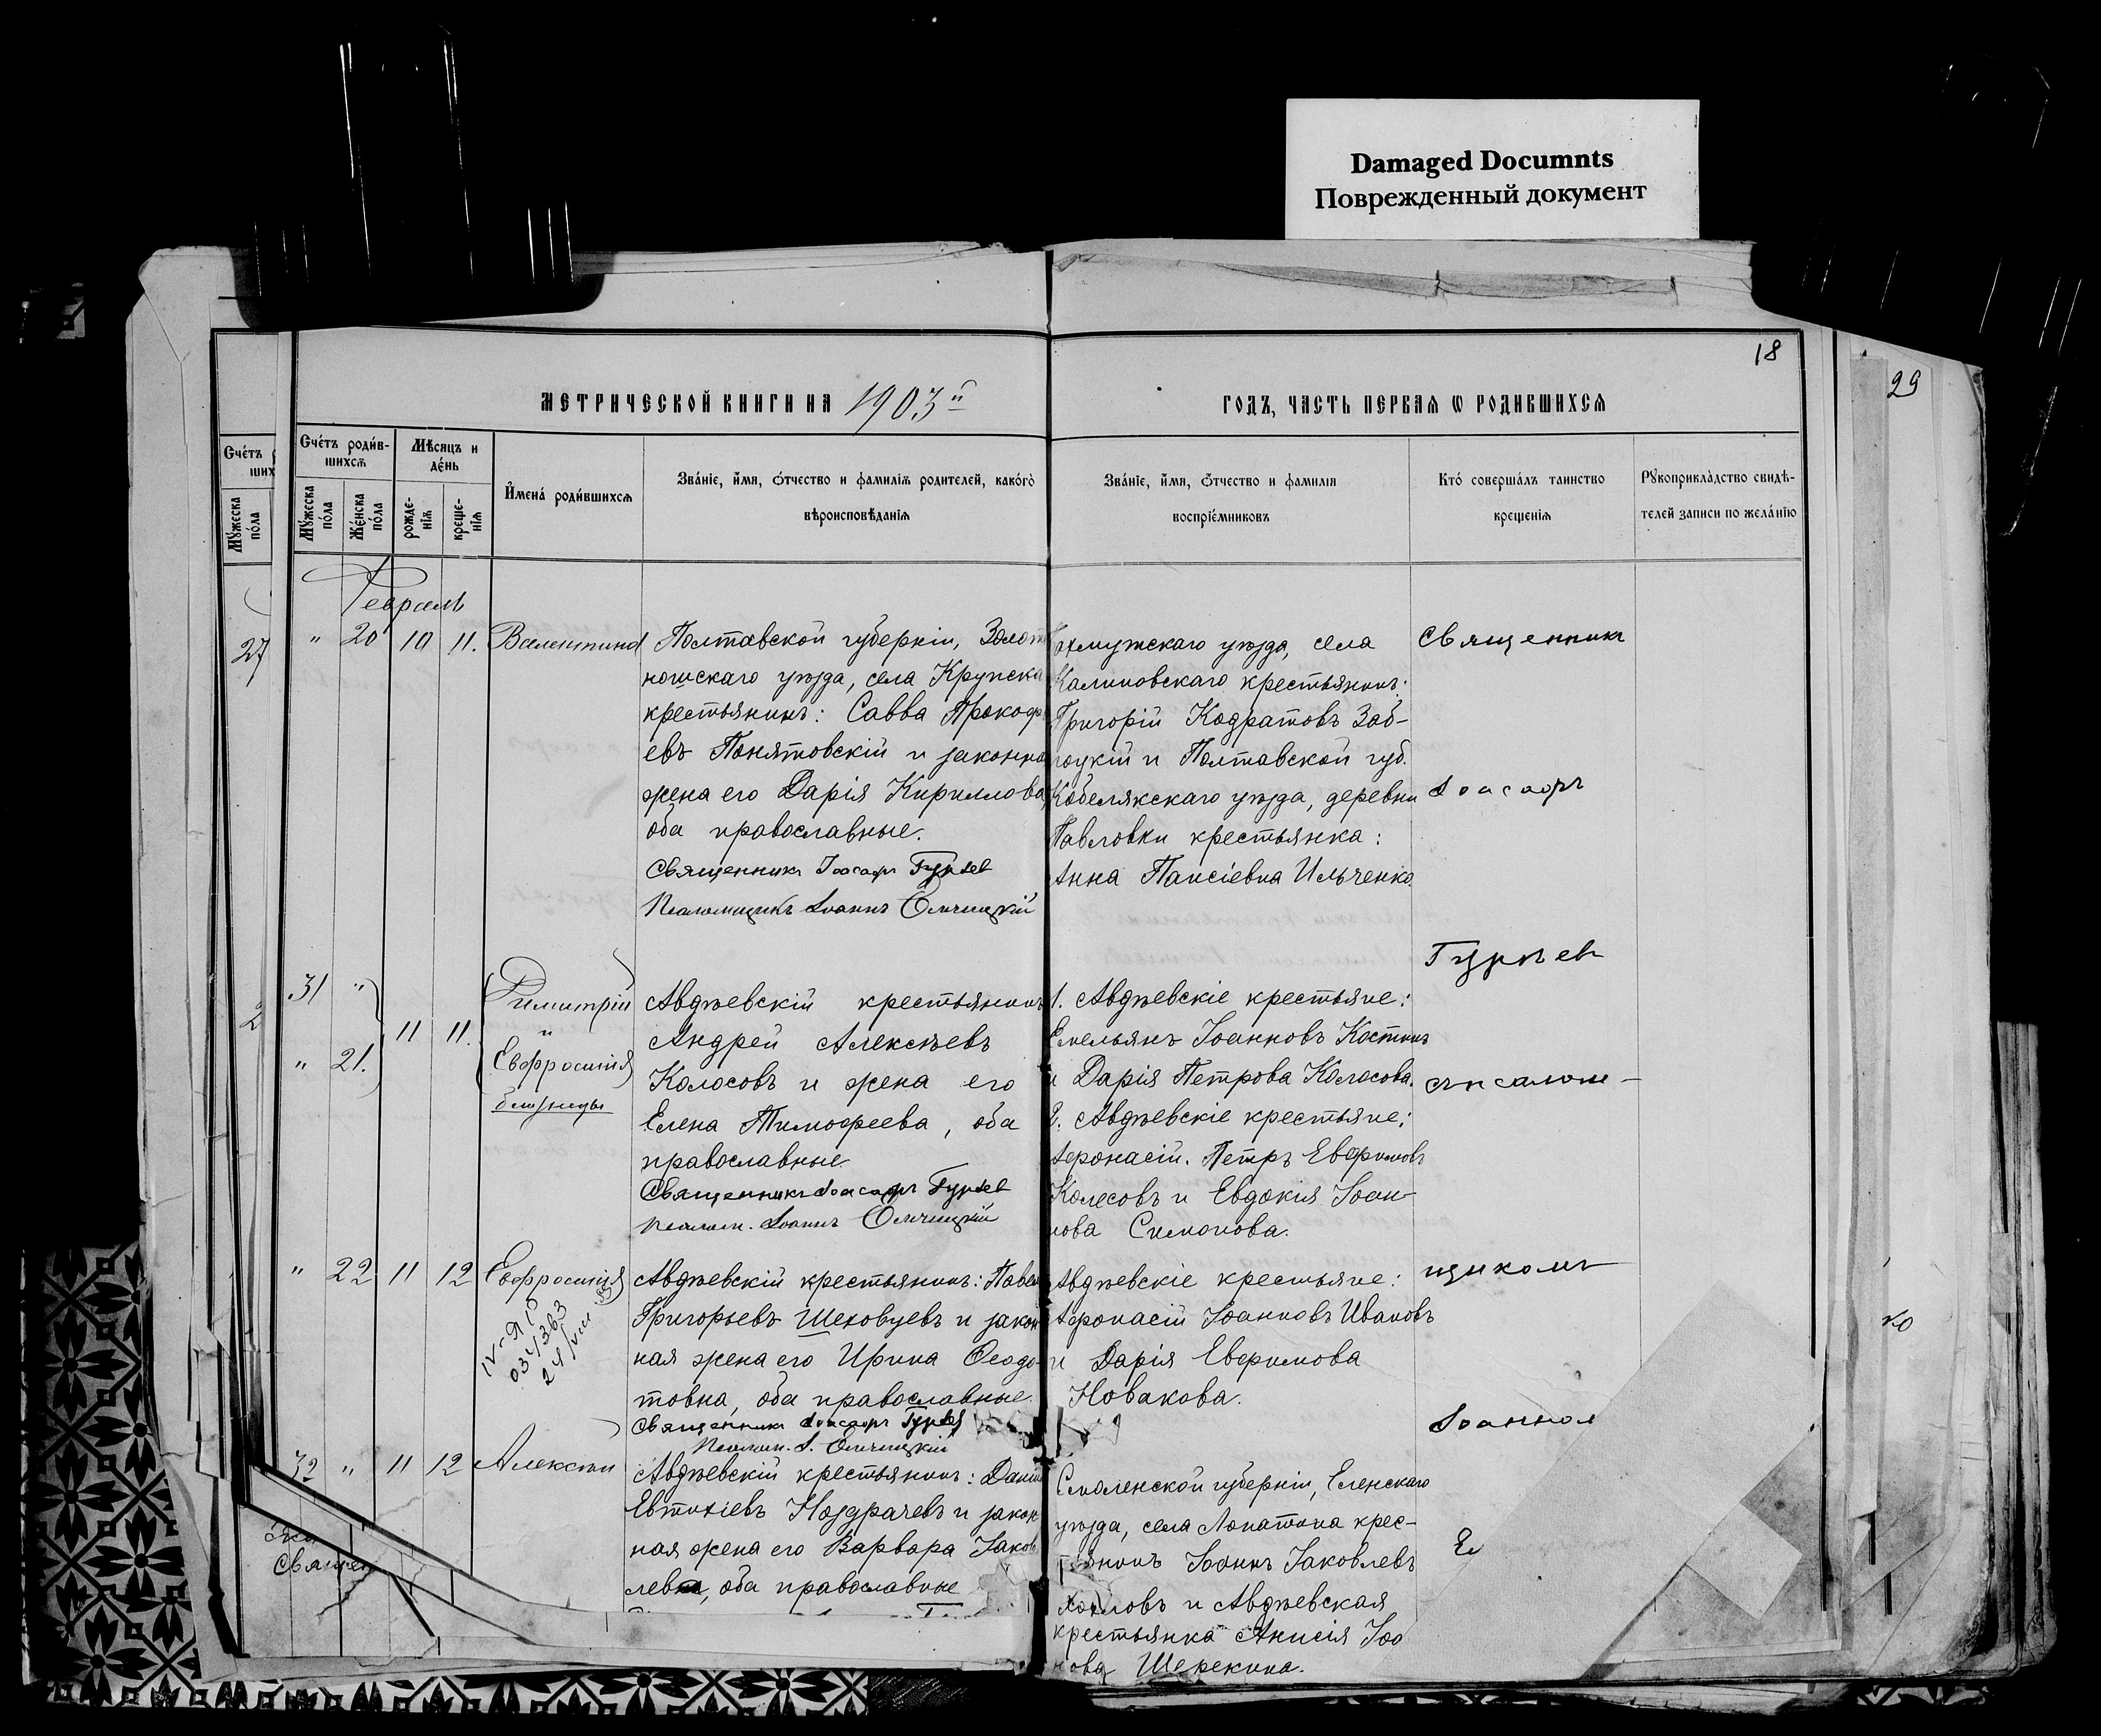 Damaged Documnts
Поврежденный документ
18
29
МЕТРИЧЕСКОЙ КНИГИ НА 1903й
ГОДЪ, ЧАСТЬ ПЕРВАЯ Ѡ РОДИВШИХСЯ
Счетъ
ших
Мужеска пола
Счетъ родив-
шихся
Мужеска пола
Женска пола
Мѣсяцъ и день
рожде-
нія
креще-
нія
Имена родившихся
Званіе, имя, отчество и фамилія родителей, какого
вѣроисповѣданія
Званіе, имя, отчество и фамилія
воспріемниковъ
Кто совершалъ таинство
крещенія
Рукоприкладство свидѣ-
телей записи по желанію
Февраль
27
" 20 10 11. Валентина
Полтавской губерніи, Золот
ношскаго уѣзда, села Крупска
крестьянинъ: Савва Прокоф
евъ Понятовскій и законна
жена его Дарія Кириллова,
оба православные.
Священникъ Іоасафъ Гурьев
Псаломщикъ Іоаннъ Ольшицкій
ахмутскаго уѣзда, села
Калиновскаго крестьянинъ:
Григорій Кодратовъ Заб-
лоцкій и Полтавской губ.
Кобелякскаго уѣзда, деревни
Павловки крестьянка:
Анна Паисіевна Ильченко.
Священникъ
Іоасафъ
Гурьев
31 "
" 21.
11 11.
Димитрій
и
Евфросинія
близнецы
Авдѣевскій крестьянинъ
Андрей Алексѣевъ
Колосовъ и жена его
Елена Тимофеева, оба
православные.
Священникъ Іоасафъ Гурьев
Псалом. Іоаннъ Ольшицкій
1. Авдѣевскіе крестьяне:
Емельянъ Іоанновъ Костинъ
и Дарія Петрова Колосова.
2. Авдѣевскіе крестьяне:
Афонасій. Петръ Евфимовъ
Колесовъ и Евдокія Іоан-
нова Симонова.
съ псалом-
" 22 11 12 Евфросинія
Авдѣевскій крестьянинъ: Павел
Григорьевъ Шеховцевъ и закон
ная жена его Ирина Феодо-
товна, оба православные.
Священникъ Іоасафъ Гурьев
Псалом. І. Ольшицкій
Авдѣевскіе крестьяне:
Афонасій Іоанновъ Ивановъ
и Дарія Евфимова
Новакова.
щикомъ
Іоанном
32 " 11 12 Алексѣй
Авдѣевскій крестьянинъ: Дани
Евтихіевъ Ноздрачевъ и закон
ная жена его Варвара Іаков
левна, оба православные
Смоленской губерніи, Еленскаго
уѣзда, села Лопатина крес-
тьянинъ Іоаннъ Іаковлевъ
и Авдѣевская
крестьянка Анисія Іоа
нова Шерекина.
Священ